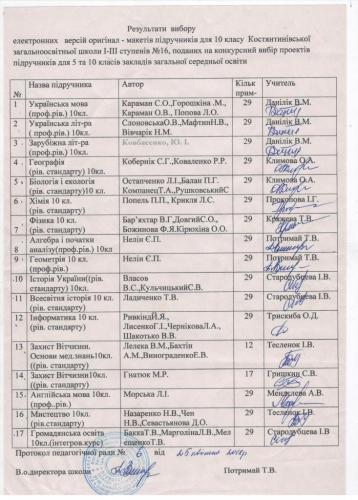 Результати вибору
електронних версій оригінал - макетів підручників для 10 класу Костянтинівської
загальноосвітньої школи І-ІІІ ступенів №16, поданих на конкурсний вибір проектів
підручників для 5 та 10 класів закладів загальної середньої освіти
№ Назва підручника Автор Кільк прим- Учитель
1 Українська мова (проф.рів.) 10кл. Караман С.О.,Горошкіна .М., Караман О.В., Попова Л.О. 29 Данілік В.М.
2 Українська літ-ра ( проф.рів.) 10кл. СлоновськаО.В.,МафтинН.В., Вівчарік Н.М. 29 Данілік В.М.
3 Зарубіжна літ-ра (рів. стандарту) 10кл. Ковбасенко, Ю. І. 29 Данілік В.М.
4 . Географія (рів. стандарту) 10кл. Кобернік С.Г.,Коваленко Р.Р. 29 Климова О.А.
5 Біологія і екологія (рів. стандарту)10 кл. Остапченко Л.І.,Балан П.Г. КомпанецТ.А.,РушковськийС 29 Климова О.А.
6 Хімія 10 кл. (рів. стандарту) Попель П.П., Крикля Л.С. 29 Прокопова І.Г.
7 Фізика 10 кл. (проф. рів.) Бар’яхтар В.Г,ДовгийС.О., Божинова Ф.Я.Кірюхіна О.О. 29 Кряжева Т.В.
8 Алгебра і початки аналізу(проф.рів.) 10кл Нелін Є.П. 29 Потримай Т.В.
9 Геометрія 10 кл. (проф.рів.) Нелін Є.П. 29 Потримай Т.В.
10 Історія України((рів. стандарту) 10кл. Власов В.С.,КульчицькийС.В. 29 Стародубцева І.В.
11 Всесвітня історія 10 кл. (рів. стандарту) Ладиченко Т.В. 29 Стародубцева І.В.
12 Інформатика 10 кл. (рів. стандарту) РивкіндЙ.Я., ЛисенкоГ.І.,ЧерніковаЛ.А., Шакотько В.В. 29 Трискиба О.Д.
13 Захист Вітчизни. Основи мед.знань10кл. ((рів. стандарту) Лелека В.М.,Бахтін А.М.,ВиноградєнкоЕ.В. 12 Тесленок І.В.
14 Захист Вітчизни10кл. ((рів. стандарту) Гнатюк М.Р. 17 Гришкин С.В.
15 Англійська мова 10кл. (проф..рів.) Морська Л.І. 29 Менделєва А.В.
16 Мистецтво 10кл. (рів. стандарту) Назаренко Н.В.,Чен Н.В.,Севастьянова Д.О. 29 Тесленок І.В.
17 Громадянська освіта 10кл.(інтегров.курс) БаккаТ.В.,МарголінаЛ.В.,Мел ещенкоТ.В. 29 Стародубцева І.В
Протокол педагогічної ради № 6 від
В.о.директора школи Потримай Т.В.